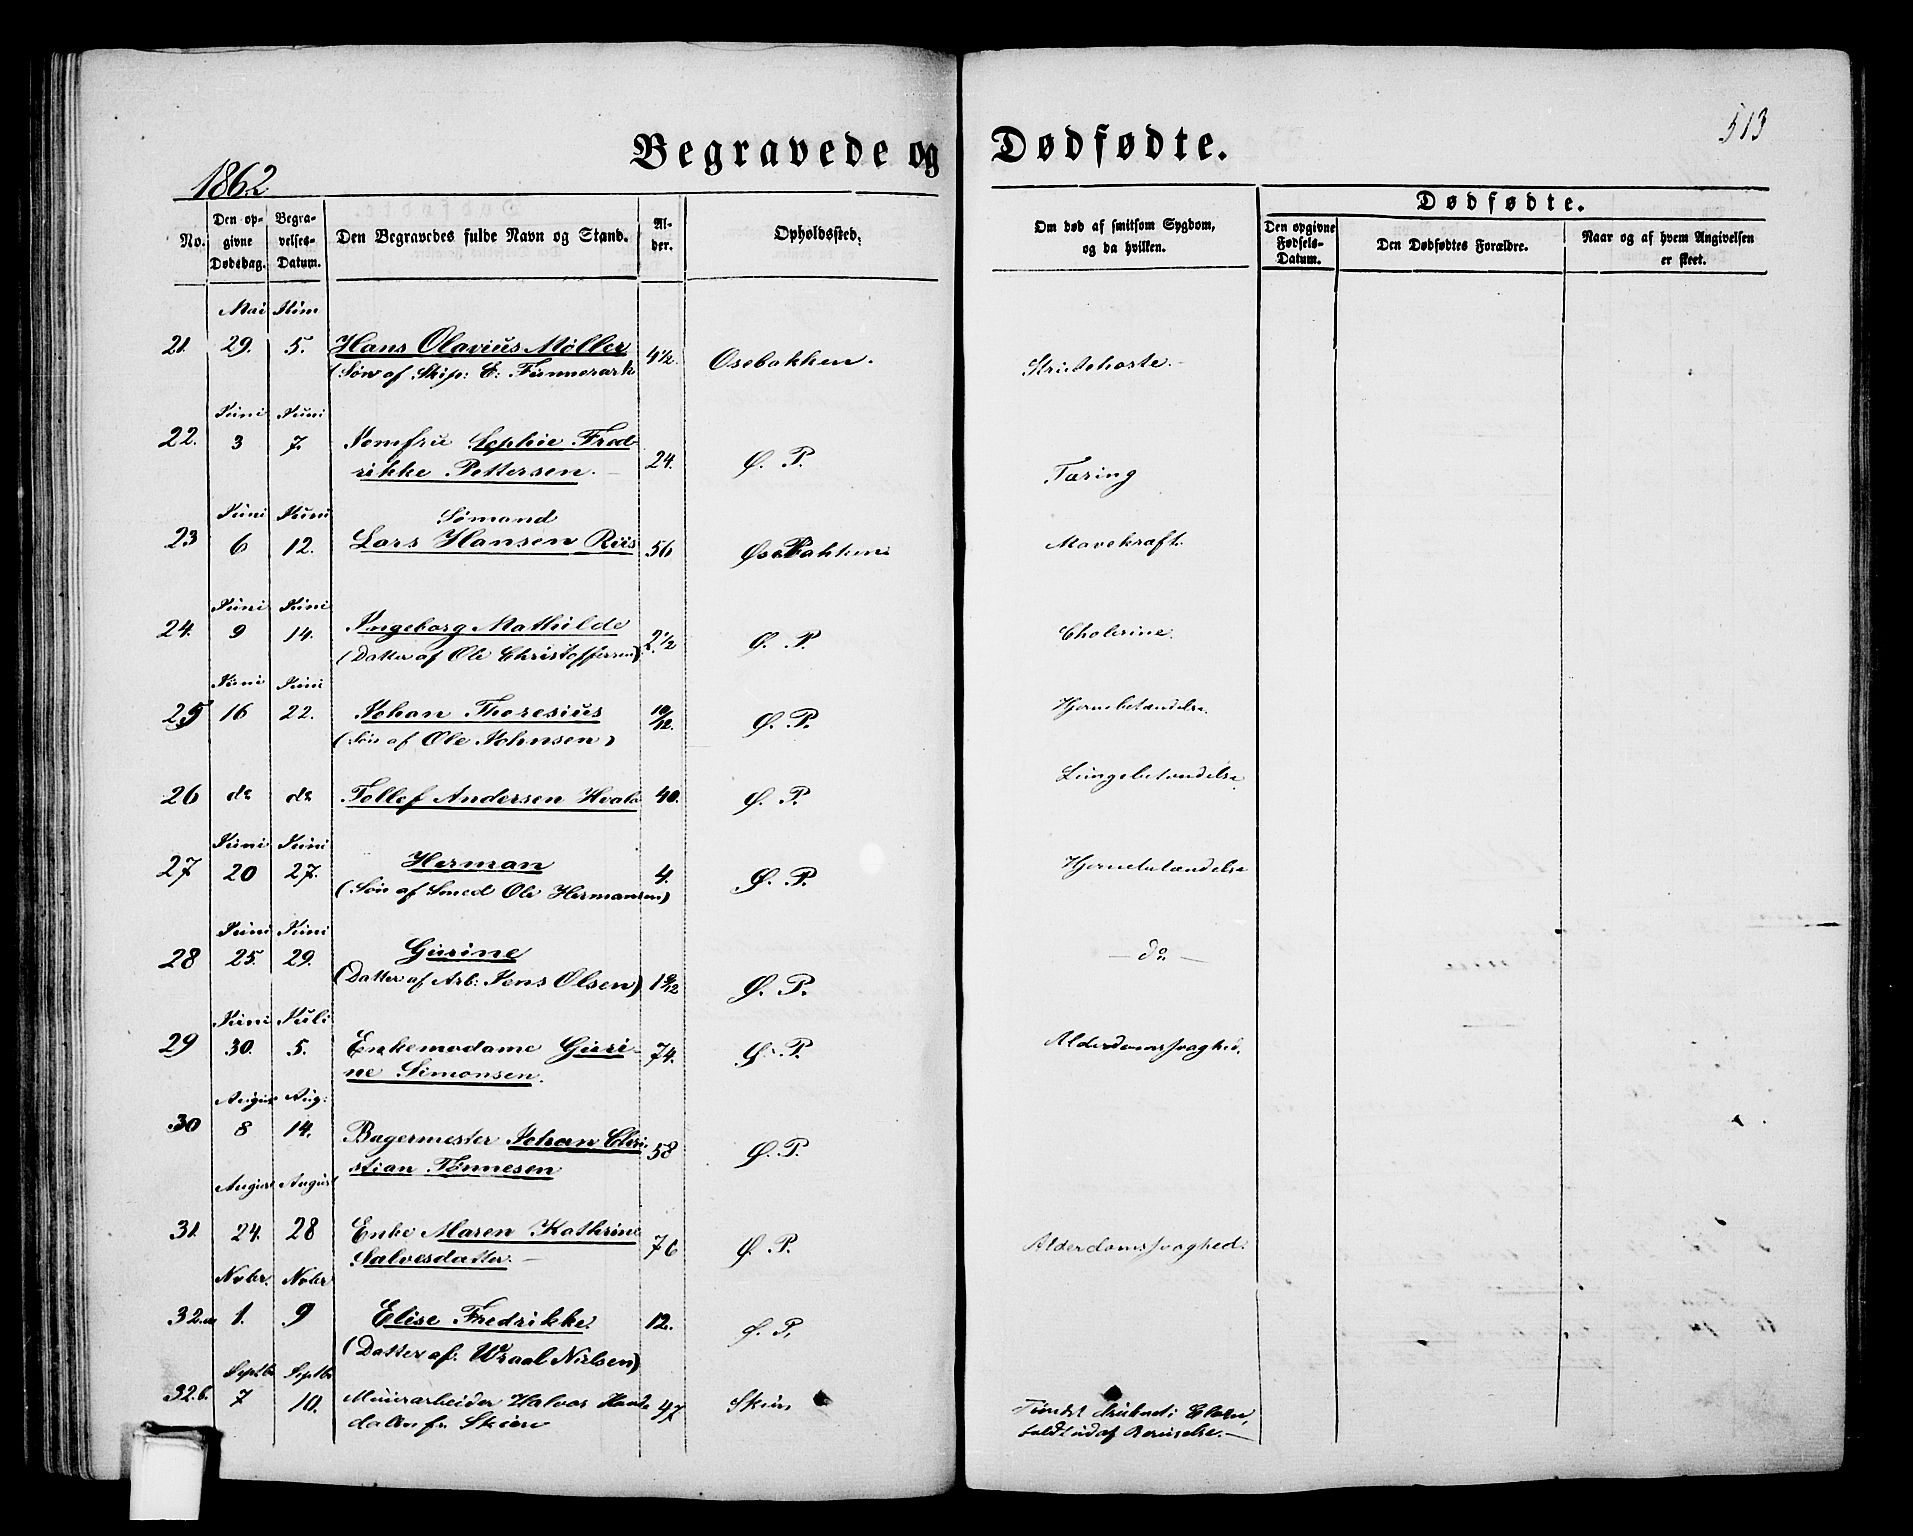 513
Begravede og Dødfødte.
1862
No.
Den opgivne Dødsdag.
Begravelses-Datum.
Den Begravedes fulde Navn og Stand.
Alder.
Opholdssted.
Om død af smitsom Sygdom, og da hvilken.
Dødfødte.
Den opgivne Fødsels-Datum.
Den Dødfødtes Forældre.
Naar og af hvem Angivelsen er skeet.
Mai Juni
21. 29. 5. Hans Olavius Møller 4½. Osebakken. Strubehoste.
(Søn af Skip: E:
Juni Juni
22. 3 7. Jomfru Sophie Fred-
rikke Pettersen. 24. Ø. P. Tæring
Juni Juni Sømand
23 6 12. Lars Hansen Riis 56 Osebakken Mavekræft.
Juni Juni
24. 9 14. Ingeborg Mathilde 2½ Ø. P. Cholerine.
(Datter af Ole Christoffersen)
Juni Juni
25 16 22. Johan Thoresius 10/12. Ø. P. Hjernebetændelse.
(Søn af Ole Johnsen)
26 do do Tollef Andersen 40. Ø. P. Lungebetændelse
Juni Juni
27 20 27. Herman 4. Ø. P. Hjernebetændelse
(Søn af Smed Ole Hermansen)
Juni Juni
28 25. 29. Gurine - do -
(Datter af Arb: Jens Olsen) 1 9/12 Ø. P.
Juni Juli
29 30. 5. Enkemadame Guri- 74. Ø. P. Alderdomssvaghed.
ne Simonsen.
August Aug:
30 8 14. Bagermester Johan Chri- 58 Ø. P.
stian Tønnesen
August August
31. 24. 28 Enke Maren Kathrine 76 Ø. P. Alderdomssvaghed.
Salvesdatter.
Novbr. Novbr
32.a 1. 9 Elise Fredrikke. 12. Ø. P.
(Datter af: Wraal Nielsen)
Septbr Septbr
32.b. 7 10. Murarbeider Halvor 47 Skien Fundet druknet i Elven,
dalen fr. Skien faldt ud af Beruselse.